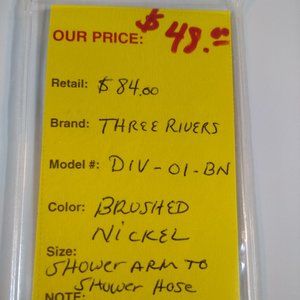 OUR PRICE: $49.00
Retail: $84.00
Brand: THREE RIVERS
Model #: DIV-01-BN
Color: BRUSHED
NICKEL
Size:
SHOWER ARM TO
SHOWER HOSE
NOTE: